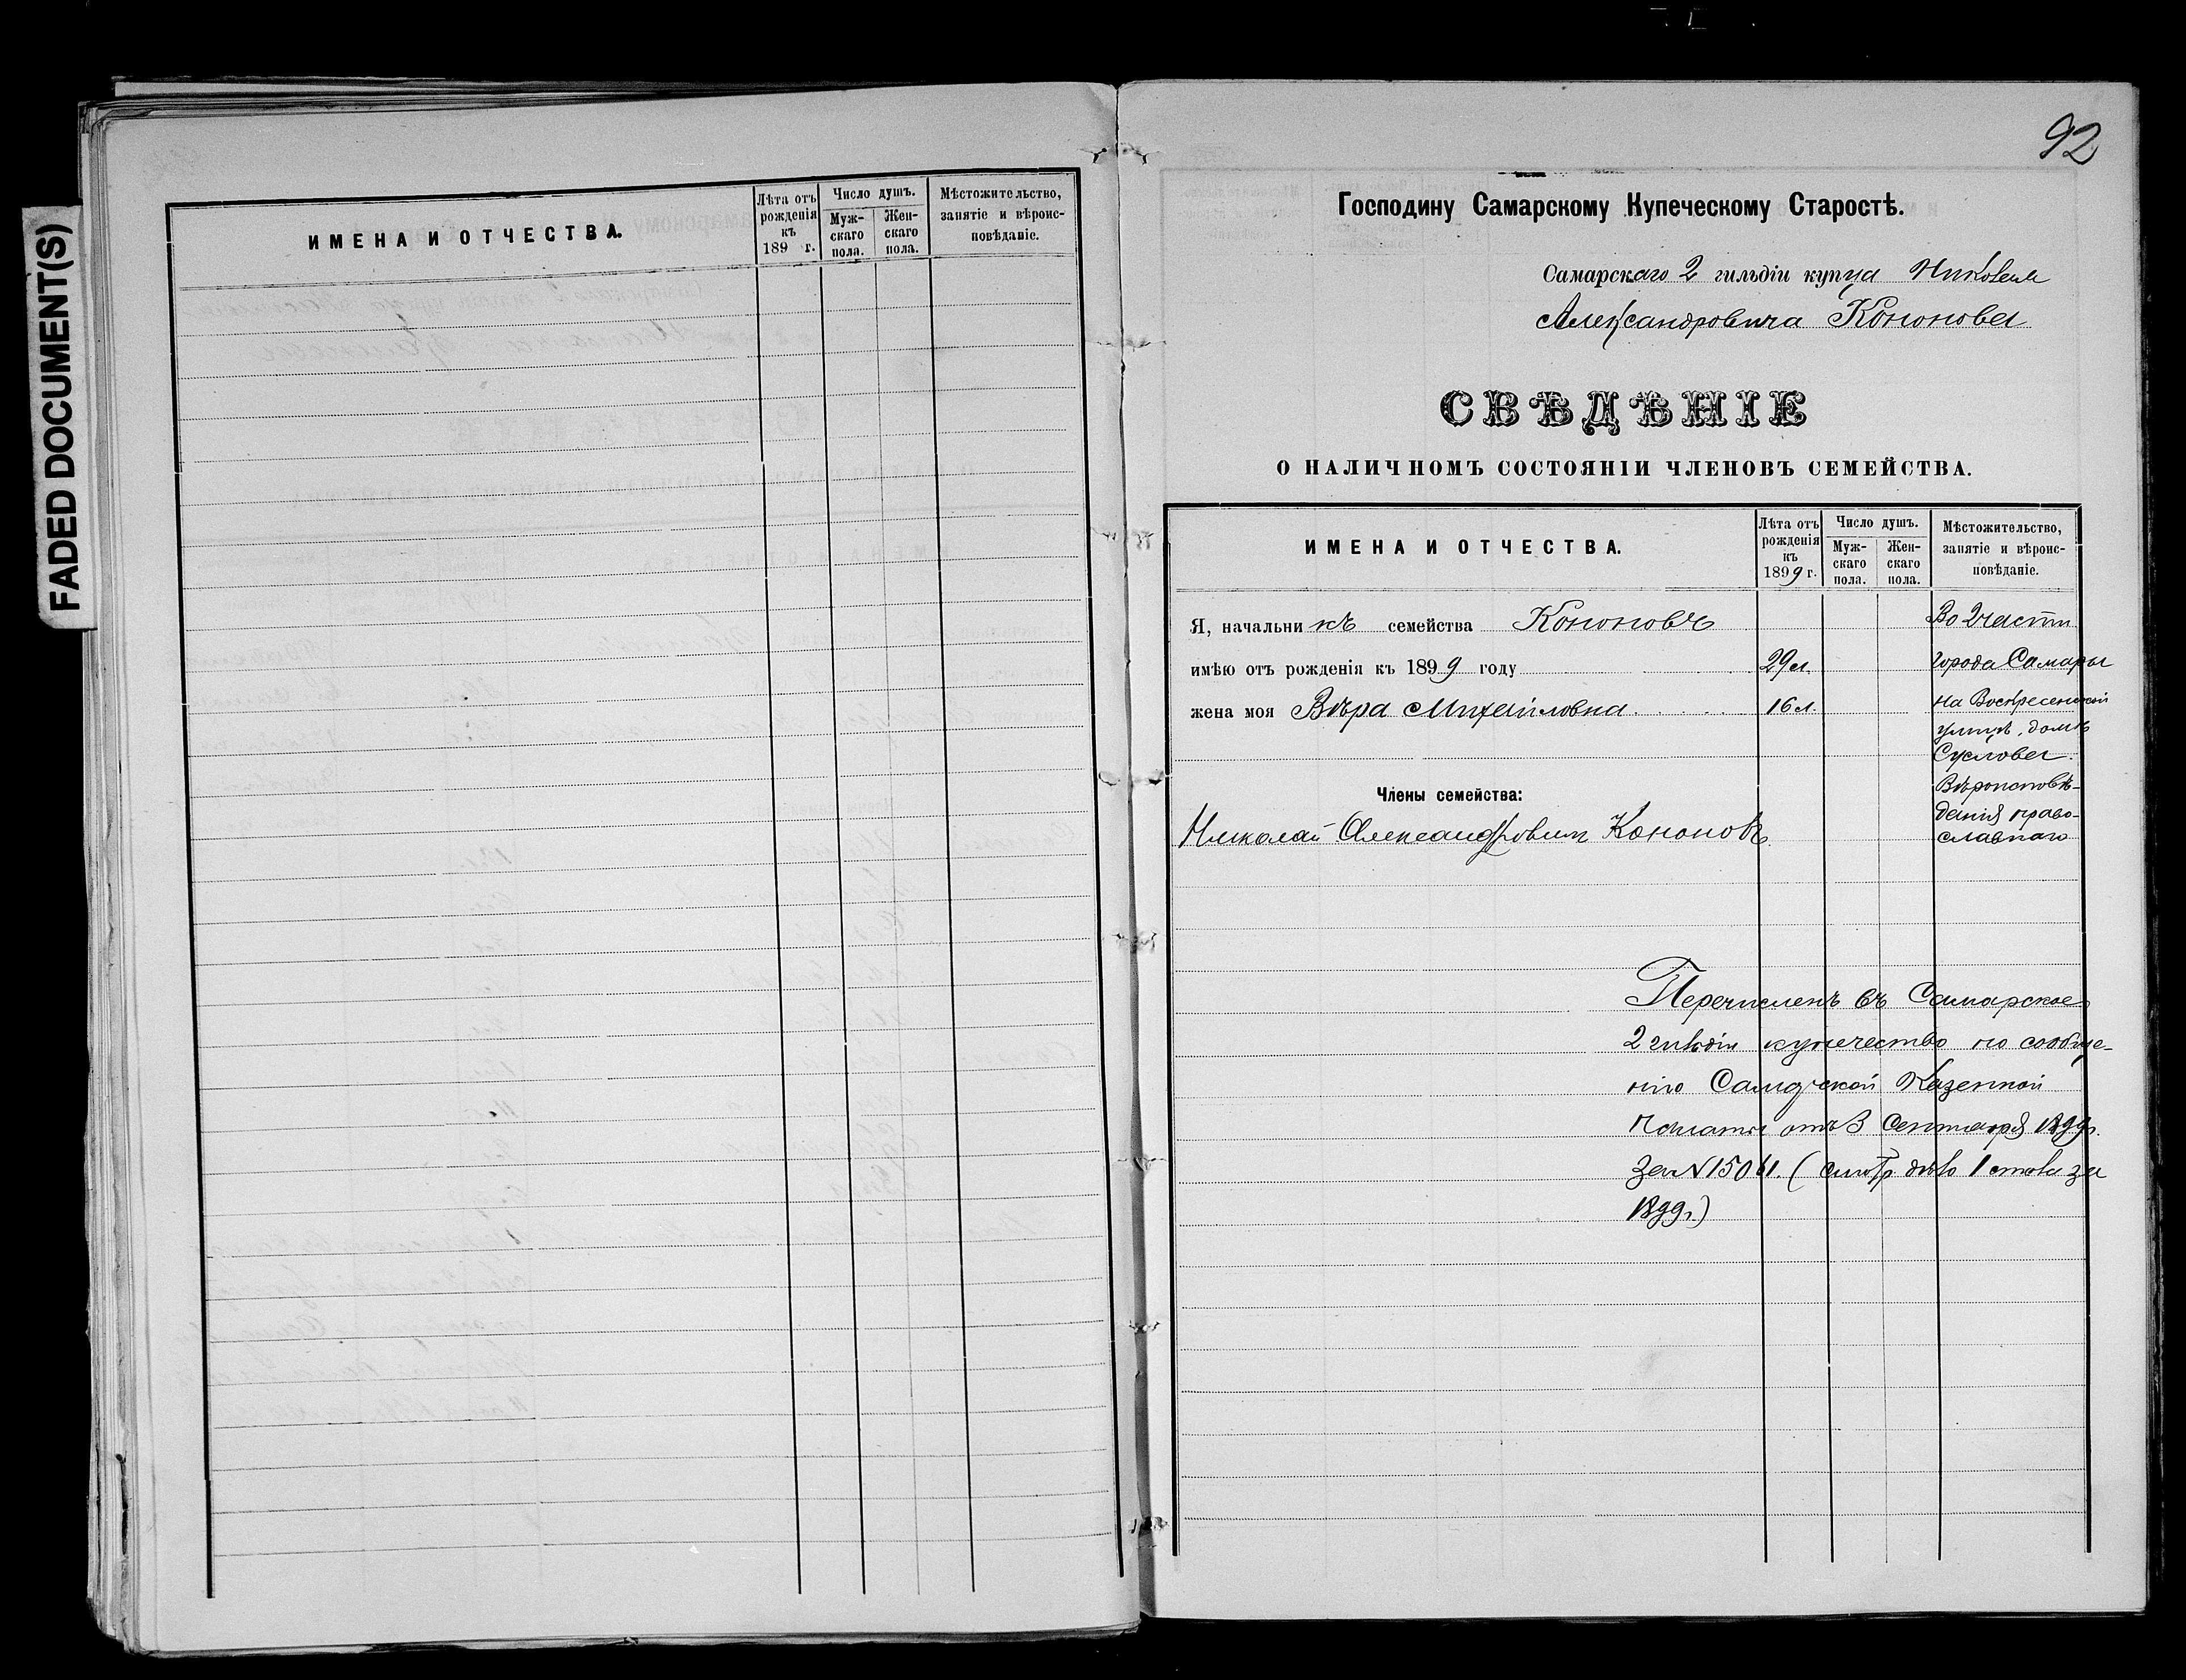 FADED DOCUMENT(S)
ИМЕНА И ОТЧЕСТВА.
Лѣта отъ рожденія къ 189 г.
Число душъ.
Мужскаго пола.
Женскаго пола.
Мѣстожительство, занятіе и вѣроисповѣданіе.
92
Господину Самарскому Купеческому Старостѣ.
Самарскаго 2 гильдіи купца Николая
Александровича Кононова
СВѢДѢНІЕ
О НАЛИЧНОМЪ СОСТОЯНІИ ЧЛЕНОВЪ СЕМЕЙСТВА.
ИМЕНА И ОТЧЕСТВА.
Лѣта отъ рожденія къ 1899 г.
Число душъ.
Мужскаго пола.
Женскаго пола.
Мѣстожительство, занятіе и вѣроисповѣданіе.
Я, начальникъ семейства Кононовъ
имѣю отъ рожденія къ 1899 году 29 л.
жена моя Вѣра Михайловна 16 л.
Во 2 части
города Самары
на Воскресенской
улицѣ, домъ
Суслова.
Вѣроисповѣ-
данія право-
славнаго
Члены семейства:
Николай Александровичъ Кононовъ
Перечисленъ въ Самарское
2 гильдіи купечество по сообще-
нію Самарской Казенной
Палаты отъ 3 Сентября 1899 г.
за N 15061. (смотр. дѣло 1 стола за
1899 г.)